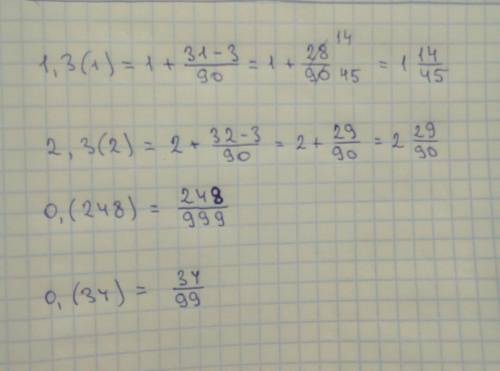 1,3(1) = 1 + 31-3/90 = 1 + 28/90 14/45 = 1 14/45
2,3(2) = 2 + 32-3/90 = 2 + 29/90 = 2 29/90
0,(248) = 248/999
0,(34) = 34/99